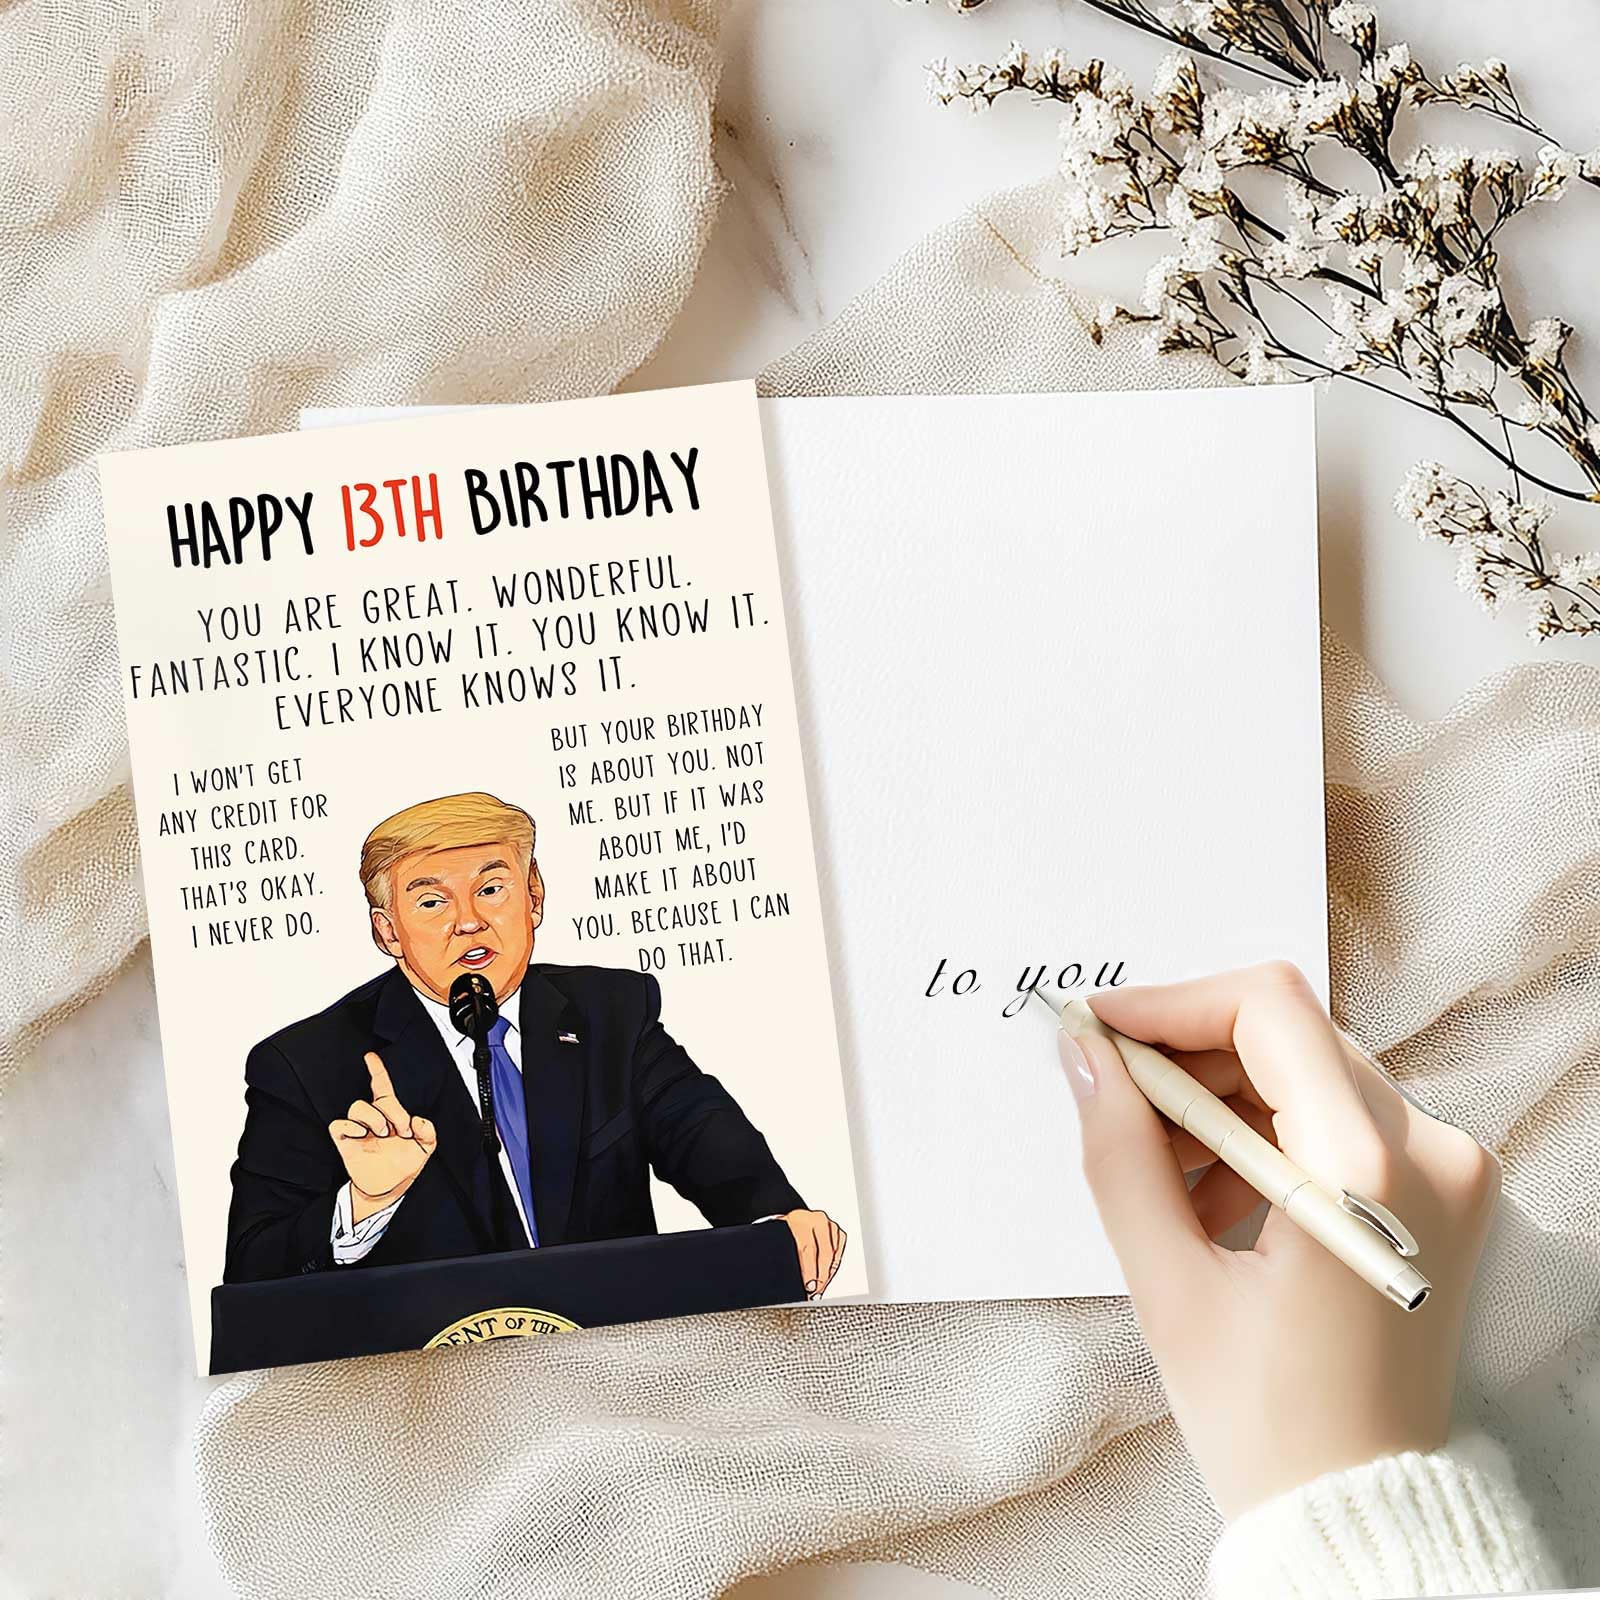 HAPPY 13TH BIRTHDAY
YOU ARE GREAT. WONDERFUL.
FANTASTIC. I KNOW IT. YOU KNOW IT.
EVERYONE KNOWS IT.
I WON'T GET
ANY CREDIT FOR
THIS CARD.
THAT'S OKAY.
I NEVER DO.
BUT YOUR BIRTHDAY
IS ABOUT YOU. NOT
ME. BUT IF IT WAS
ABOUT ME, I'D
MAKE IT ABOUT
YOU. BECAUSE I CAN
DO THAT.
ENT OF THE
to you